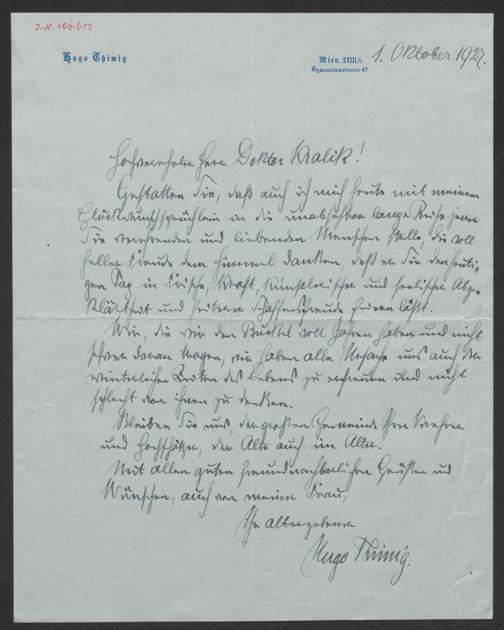 I.N. 106.653
Hugo Thimig
Wien, XVIII/1
Gymnasiumstrasse 47
1. Oktober 1927.
Hochverehrter Herr Doktor Kralik!
Gestatten Sie, daß auch ich mich heute mit meinem
Glückwunschsprüchlein in die unabsehbar lange Reihe jener
Sie verehrenden und liebenden Menschen stelle, die voll
heller Freude dem Himmel danken, daß er Sie den heuti-
gen Tag in Frische, Kraft, künstlerischer und seelischer Abge-
klärtheit und heiterer Schaffensfreude feiern läßt.
Wir, die wir den Buckel voll Jahren haben und nicht
schwer daran tragen, wir haben alle Ursache uns auch der
winterlichen Zeiten des Lebens zu erfreuen und nicht
schlecht von ihnen zu denken.
Bleiben Sie uns, der großen Gemeinde Ihrer Verehrer
und Hochschätzer, der Alte auch im Alter.
Mit allen guten freundnachbarlichen Grüßen und
Wünschen, auch von meiner Frau,
Ihr altergebener
Hugo Thimig.